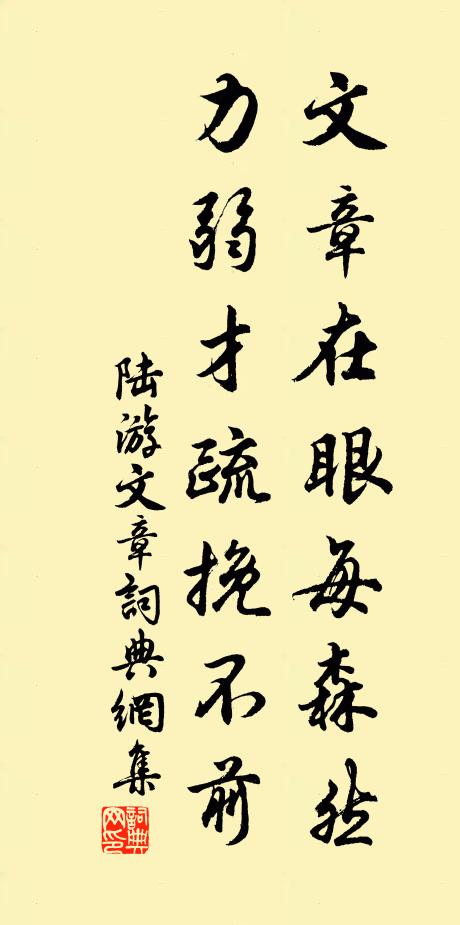 文章在眼每森然
力弱才疏挽不前
陆游文章詞典網集
詞典网印